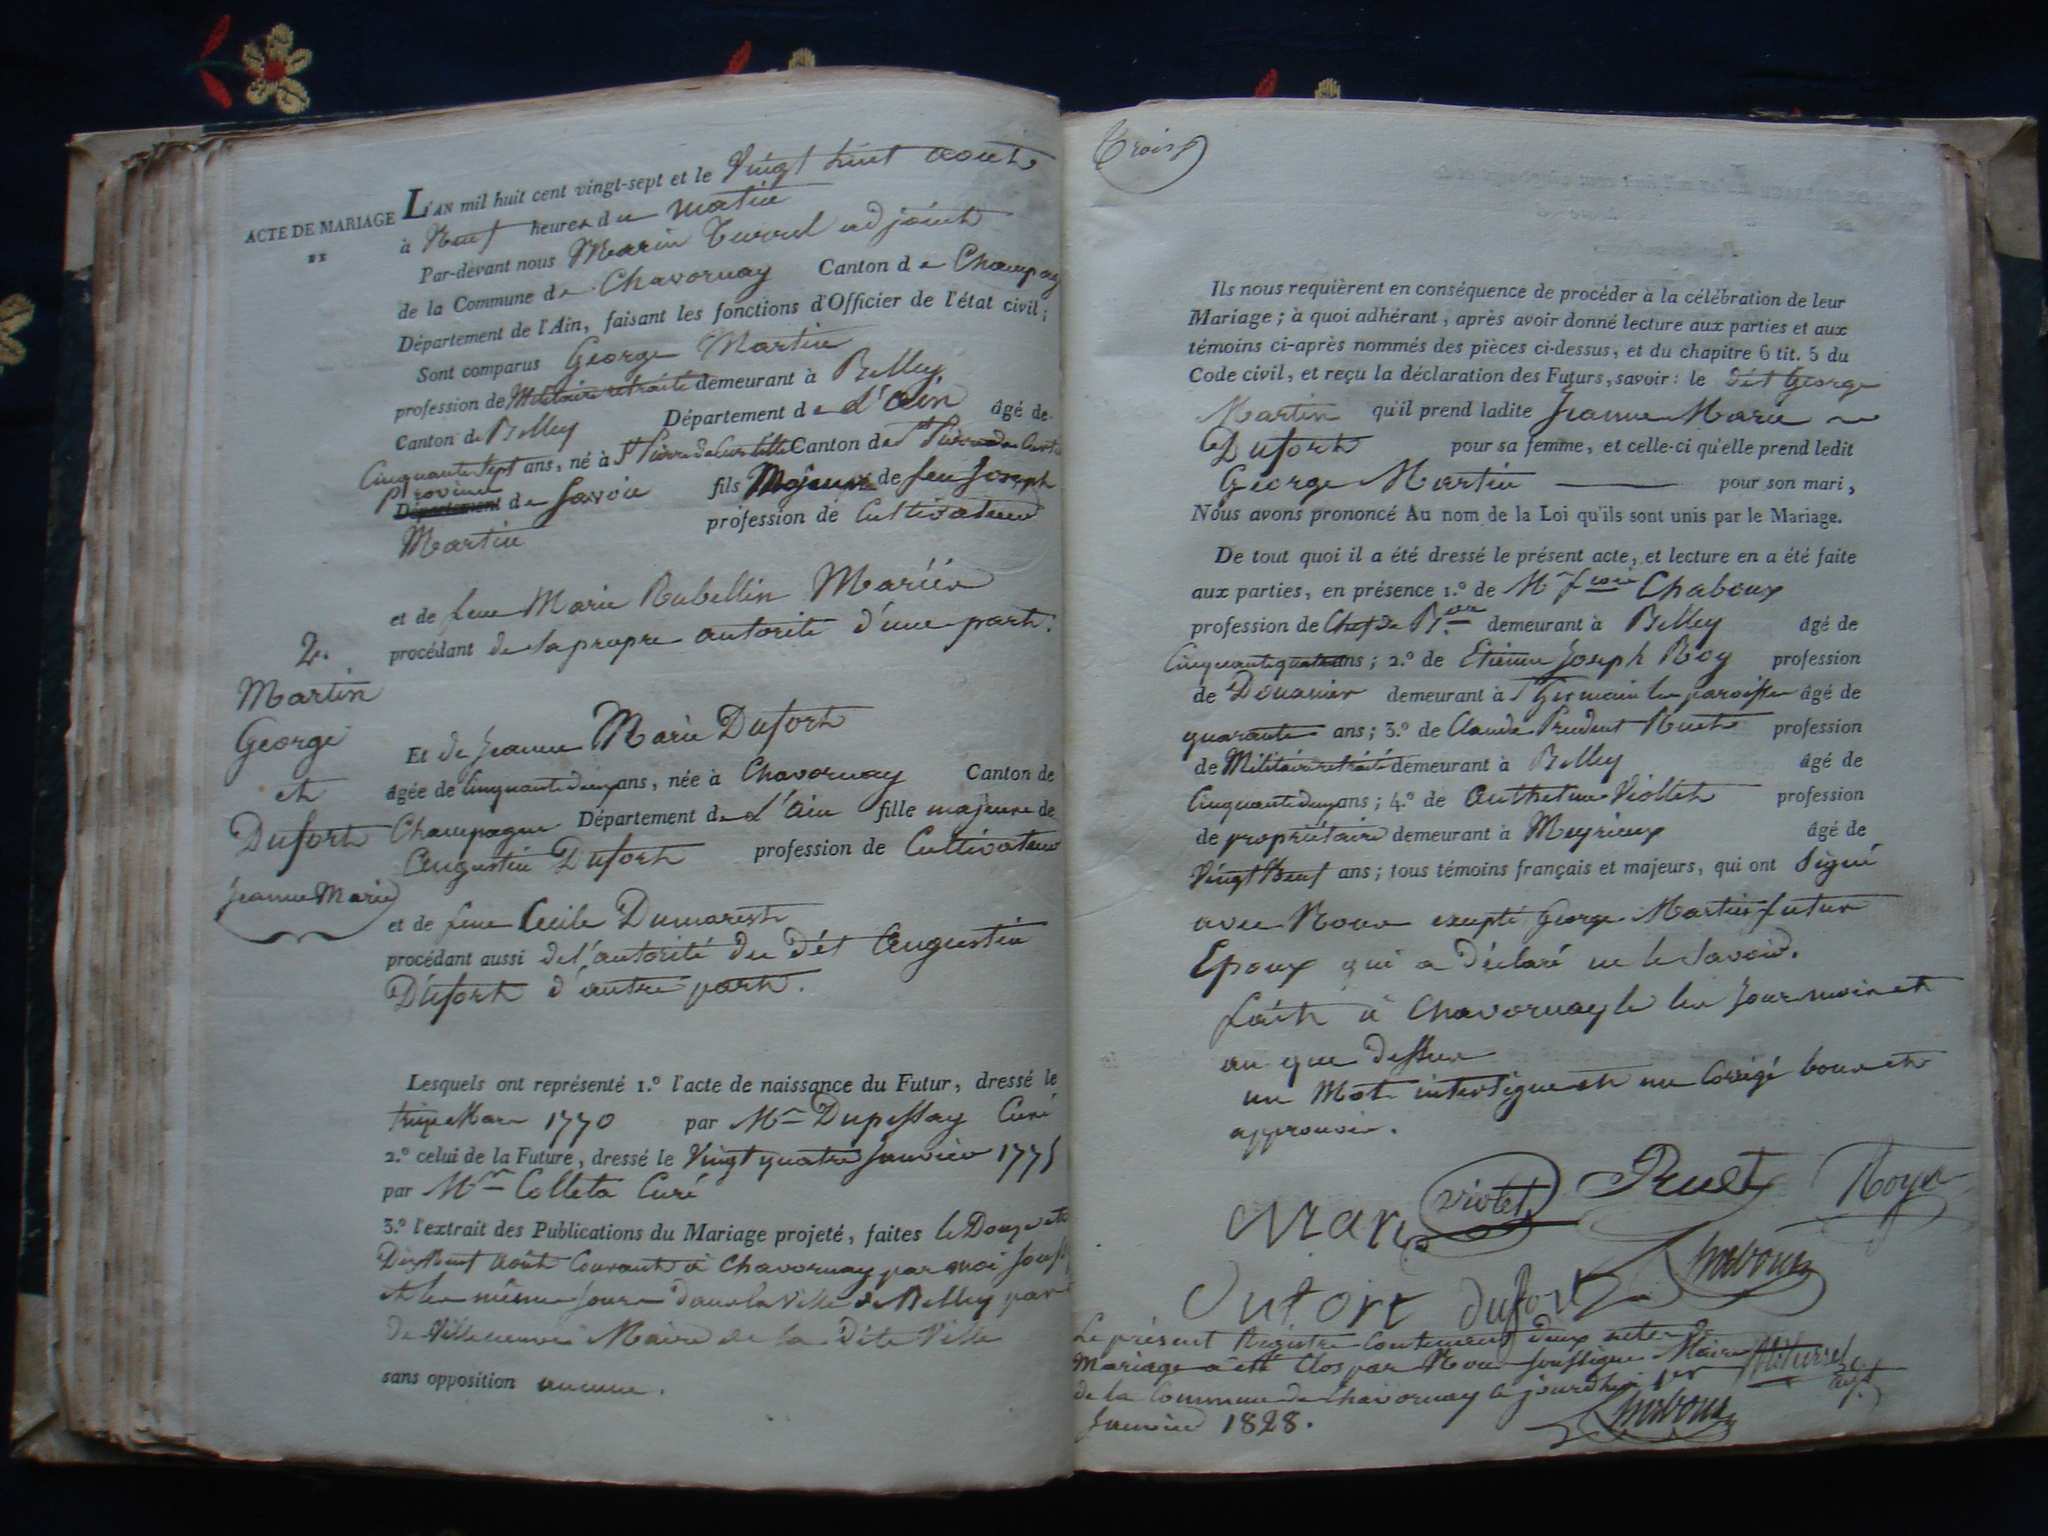 ACTE DE MARIAGE
DE
L'AN mil huit cent vingt-sept et le Vingt huit août
à Neuf heures du matin
Par-devant nous Marin Turrel adjoint
de la Commune de Chavornay Canton de Champag
Département de l'Ain, faisant les fonctions d'Officier de l'état civil;
Sont comparus George Martin
profession de Militaire retraité demeurant à Belley
Canton de Belley Département de L'ain âgé de
Cinquante Sept ans, né à St Pierre de Curtille Canton de St Pierre de
province
Département de Savoie fils Majeur de feu Joseph
Martin profession de Cultivateur
et de feue Marie Rubellin Mariés
procédant de sa propre autorité d'une part.
2.
Martin
George
et
Dufort
Jeanne Marie
Et de Jeanne Marie Dufort
âgée de Cinquante deux ans, née à Chavornay Canton de
Champagne Département de L'ain fille majeure de
Augustin Dufort profession de Cultivateur
et de feue Cecile Dumarest
procédant aussi de l'autorité du dét Augustin
Dufort d'autre part.
Lesquels ont représenté 1.º l'acte de naissance du Futur, dressé le
Mars 1770 par Mr Dupessay Curé
2.º celui de la Future, dressé le Vingt quatre Janvier 1775
par Mr Colleta Curé
3.º l'extrait des Publications du Mariage projeté, faites le Douze et
Dix Neuf Août Courant à Chavornay par moi Souss
et les même Jours dans la Ville de Belley par
de Villeneuve Maire de la Dite Ville
sans opposition aucune.
Trois
Ils nous requièrent en conséquence de procéder à la célébration de leur
Mariage; à quoi adhérant, après avoir donné lecture aux parties et aux
témoins ci-après nommés des pièces ci-dessus, et du chapitre 6 tit. 5 du
Code civil, et reçu la déclaration des Futurs, savoir: le dét George
Martin qu'il prend ladite Jeanne Marie
Dufort pour sa femme, et celle-ci qu'elle prend ledit
George Martin pour son mari,
Nous avons prononcé Au nom de la Loi qu'ils sont unis par le Mariage.
De tout quoi il a été dressé le présent acte, et lecture en a été faite
aux parties, en présence 1.º de Mr fcois Chaboux
profession de Chef de Bon demeurant à Belley âgé de
Cinquante quatre ans; 2.º de Etienne Joseph Roy profession
de Douanier demeurant à St Germain les paroisses âgé de
quarante ans; 3.º de Claude Prudent Ruet profession
de Militaire retraité demeurant à Belley âgé de
Cinquante deux ans; 4.º de Anthelme Viollet profession
de propriétaire demeurant à Meyrieux âgé de
Vingt Neuf ans; tous témoins français et majeurs, qui ont Signé
avec Nous exepté George Martin futur
Epoux qui a déclaré ne le Savoir.
fait à Chavornay le les Jour mois et
an que dessus
un Mot interligne et un Corrigé bons et
approuvés.
Mari Violet PRuet Roy
Dufort dufort Chaboux
Le présent Registre Contenant deux actes de
Mariage a été Clos par Nous soussigné Maire M. Turrel
de la Commune de Chavornay le jourd'hui 1er adjt
Janvier 1828. Chaboux